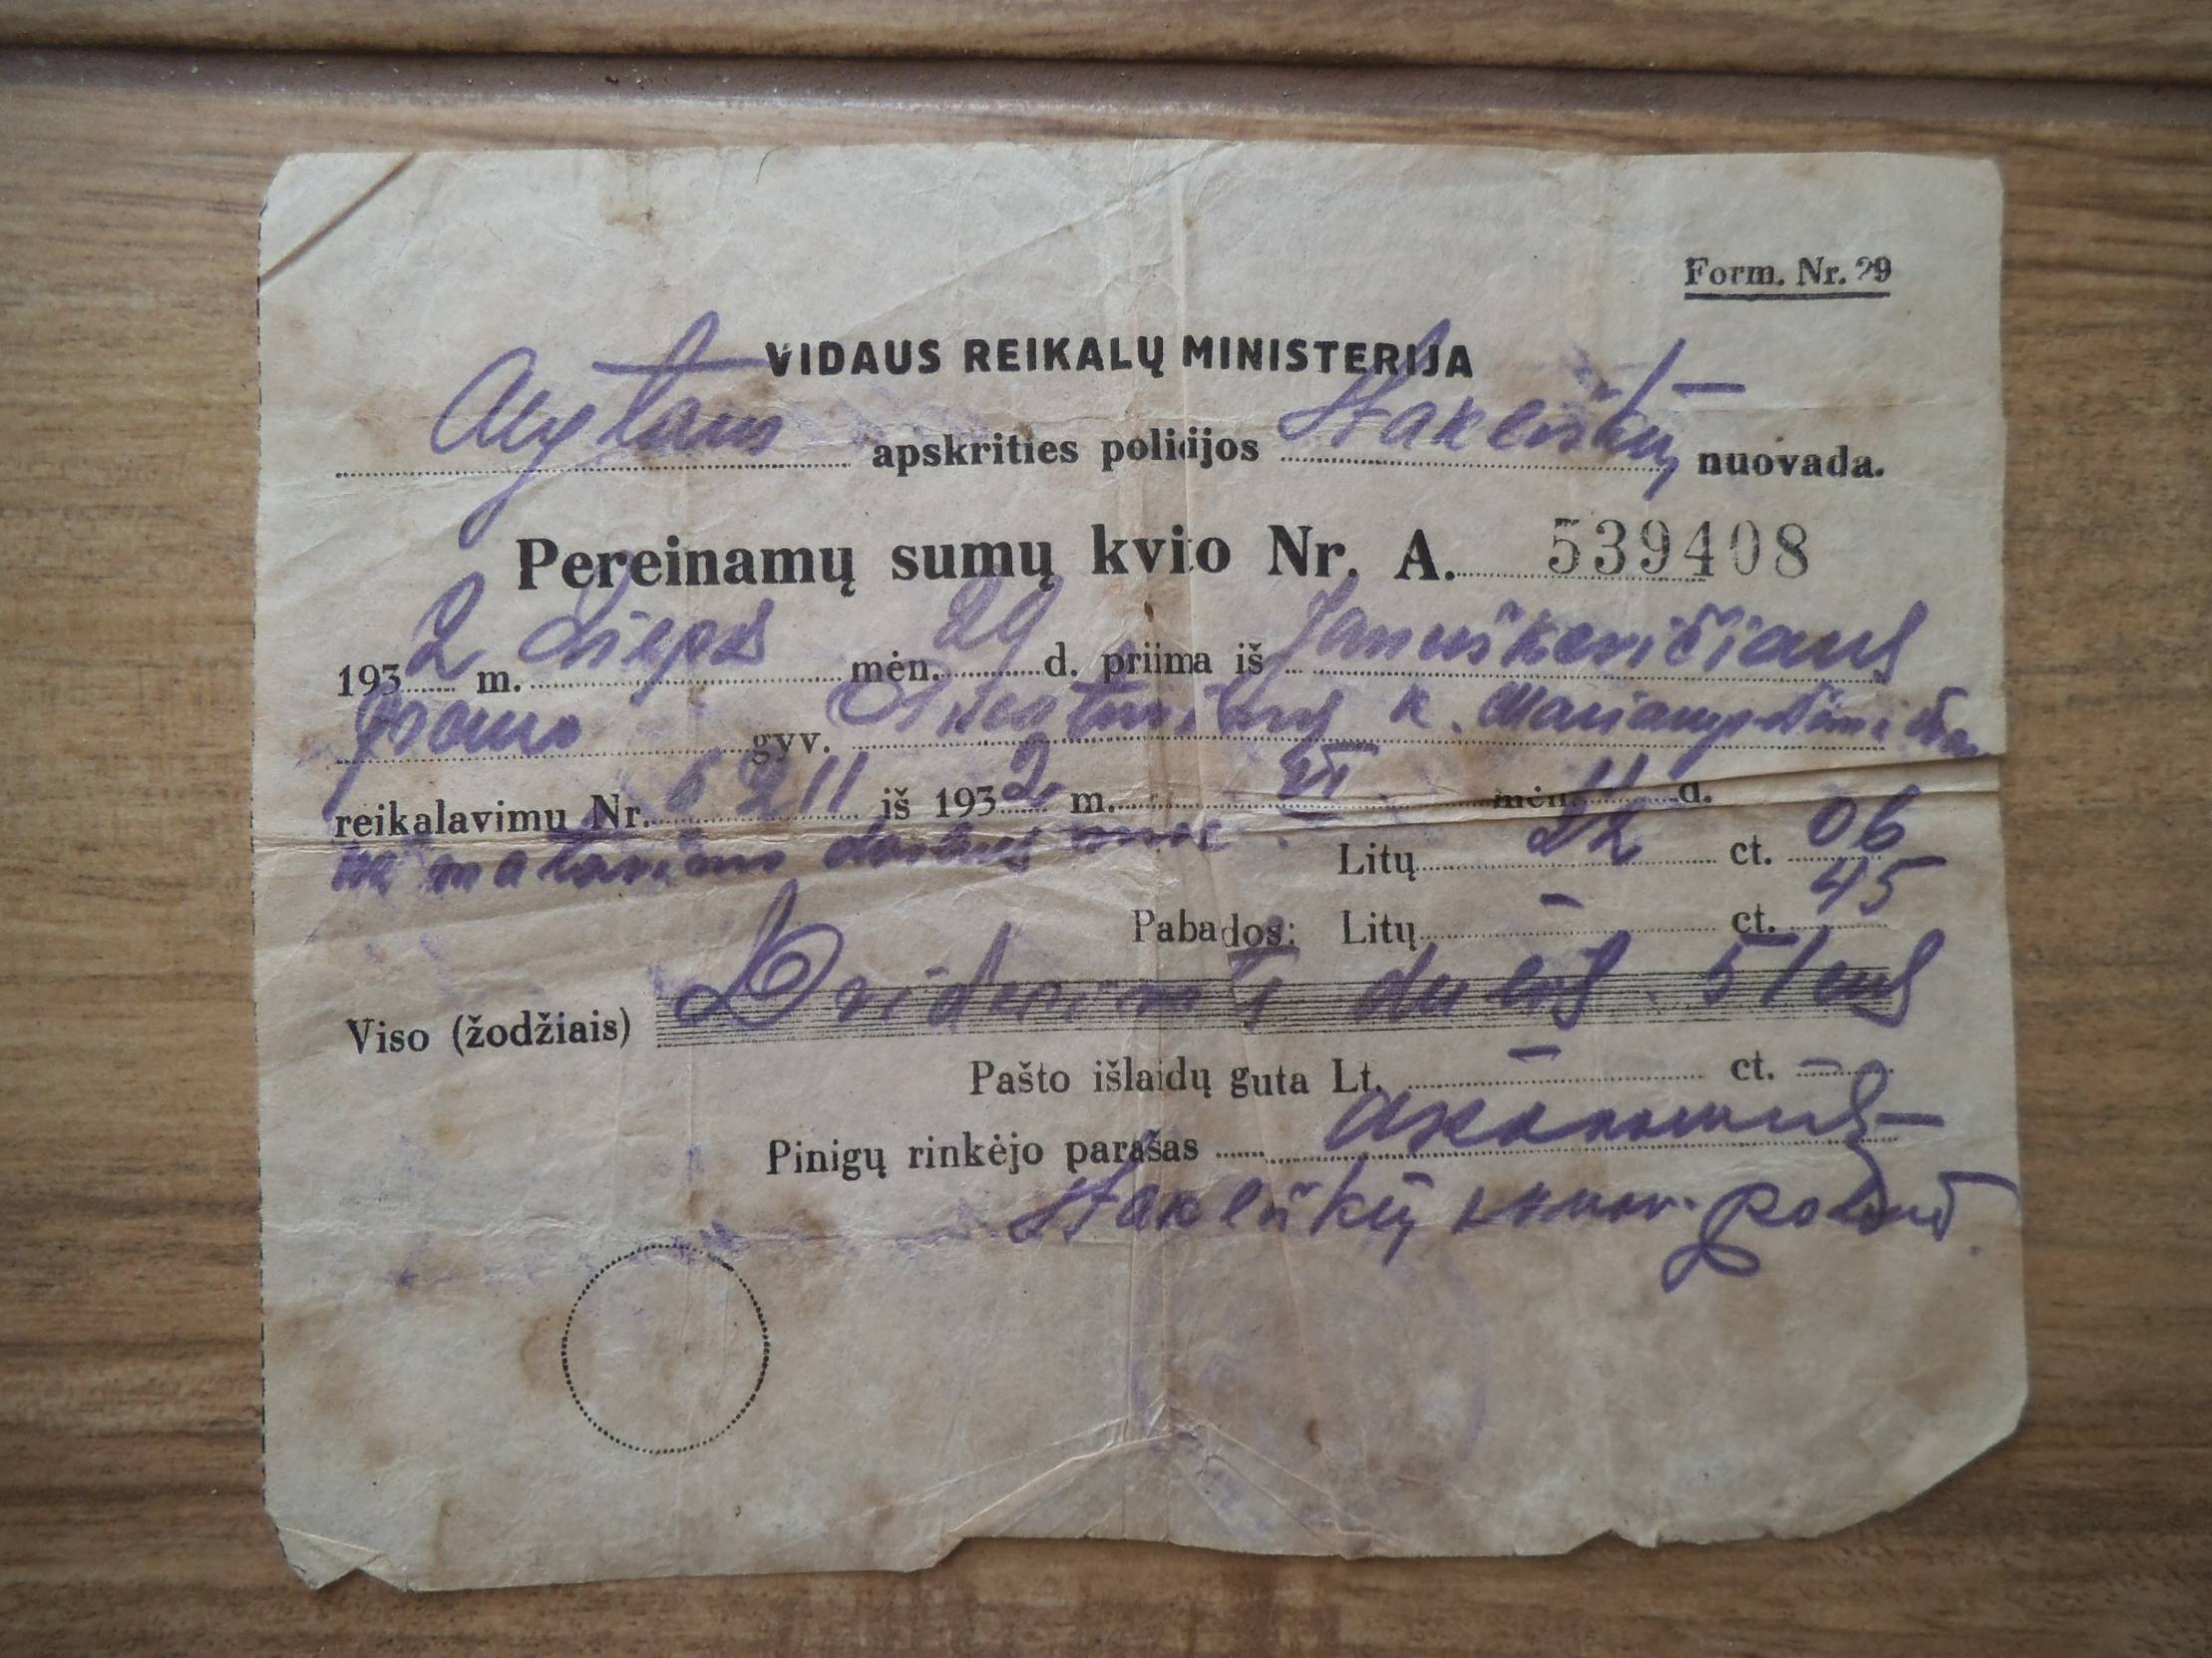 Form. Nr. 29
VIDAUS REIKALŲ MINISTERIJA
Alytaus apskrities policijos Stakliškių nuovada.
Pereinamų sumų kvito Nr. A. 539408
1932 m. Liepos mėn. 29 d. priima iš Januškevičiaus
Prano gyv. k.
reikalavimu Nr. 6211 iš 1932 m. VI mėn. d.
už matavimo darbus Litų 22 ct. 06
Pabaudos: Litų – ct. 45
Viso (žodžiais) Dvidešimt du lit. 51 cnt
Pašto išlaidų guta Lt. – ct. –
Pinigų rinkėjo parašas
Stakliškių nuov.